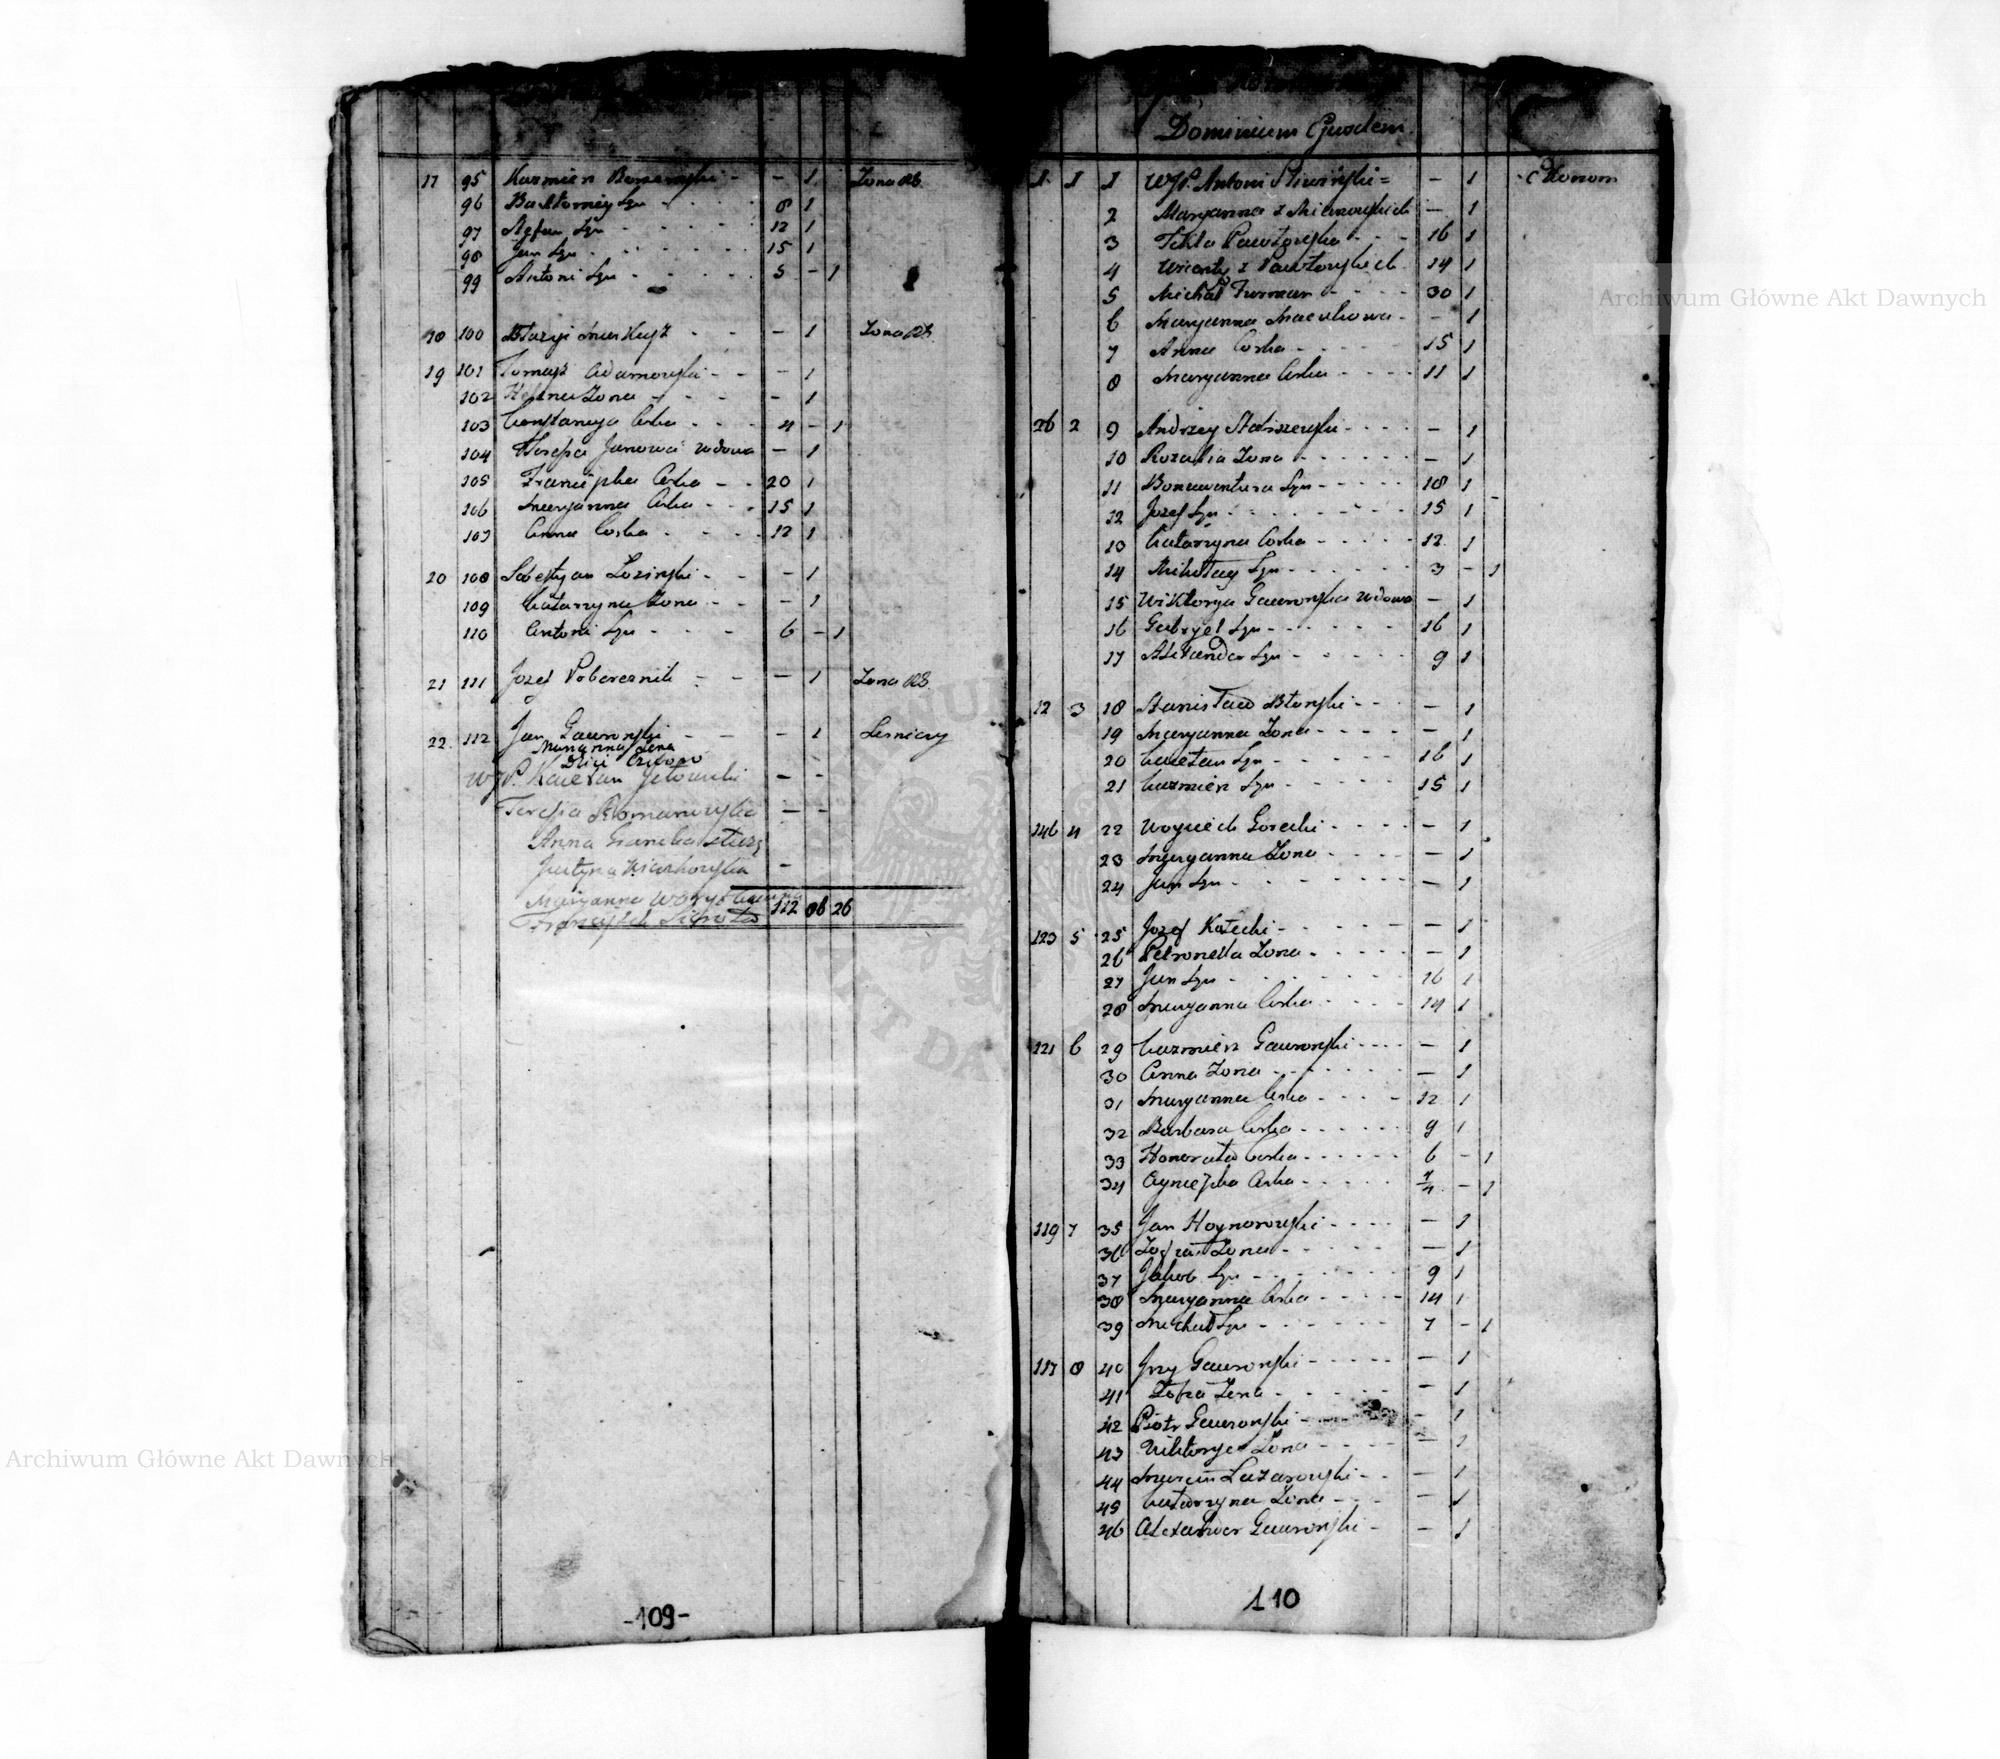 17 95 Kazmierz - - 1 Zona RB.
96 Bartłomiey Syn 8 1
97 Stefan Syn 12 1
98 Jan Syn 15 1
99 Antoni Syn 5 - 1
18 100 Błazyi - 1 Zona RB.
19 101 Tomasz Adamowski - - - 1
102 Helena Zona - 1
103 Constancya Corka 4 - 1
104 Teresia Janowa wdowa - 1
105 Franciszka Corka - - 20 1
106 Maryanna Corka 15 1
107 Anna Corka 12 1
20 108 Sebestyan Lozinski - 1
109 Catarzyna Zona - 1
110 Antoni Syn 6 - 1
21 111 Jozef Pobereznik - 1 Zona RB.
22. 112 Jan Gawronski - 1 Lesniczy
Maryanna Zena
Dzieci Czworo
WJP. Kaietan Jełowicki - -
Teresia Romanowska - -
Anna
Justyna -
Maryanna
Franciszek
112 86 26
-109-
Dominium Gwodem
1 1 1 WJP. Antoni Sliwinski = - 1 Ekonom
2 Maryanna z - 1
3 Tekla Pawłowska 16 1
4 z Pawłowskich 14 1
5 Michał Furman 30 1
6 Maryanna - 1
7 Anna Corka 15 1
8 Maryanna Corka 11 1
26 2 9 Andrzey Staliszewski - 1
10 Rozalia Zona - 1
11 Bonawentura Syn 18 1
12 Jozef Syn 15 1
13 Catarzyna Corka 12 1
14 Mikołay Syn 3 - 1
15 Wiktorya Gawronska wdowa - 1
16 Gabryel Syn 16 1
17 Alexander Syn 9 1
12 3 18 Stanisław Błonski - 1
19 Maryanna Zona - 1
20 Caietan Syn 16 1
21 Cazmierz Syn 15 1
146 4 22 Woyciech Gorecki - 1
23 Maryanna Zona - 1
24 Jan Syn - 1
123 5 25 Jozef Kotecki - 1
26 Petronella Zona - 1
27 Jan Syn 16 1
28 Maryanna Corka 14 1
121 6 29 Cazmierz Gawronski - 1
30 Anna Zona - 1
31 Maryanna Corka 12 1
32 Barbara Corka 9 1
33 Honorata Corka 6 - 1
34 Agnieszka Corka - 1
119 7 35 Jan Hoynorowski - 1
36 Zofia Zona - 1
37 Jakob Syn 9 1
38 Maryanna Corka 14 1
39 Michał Syn 7 - 1
117 8 40 Jrzy Gawronski - 1
41 Zofia Zena - 1
42 Piotr Gawronski - 1
43 Wiktorya Zona - 1
44 Marcin Lazarowski - 1
45 Catarzyna Zona - 1
46 Alexander Gawronski - 1
110
Archiwum Główne Akt Dawnych
Archiwum Główne Akt Dawnych